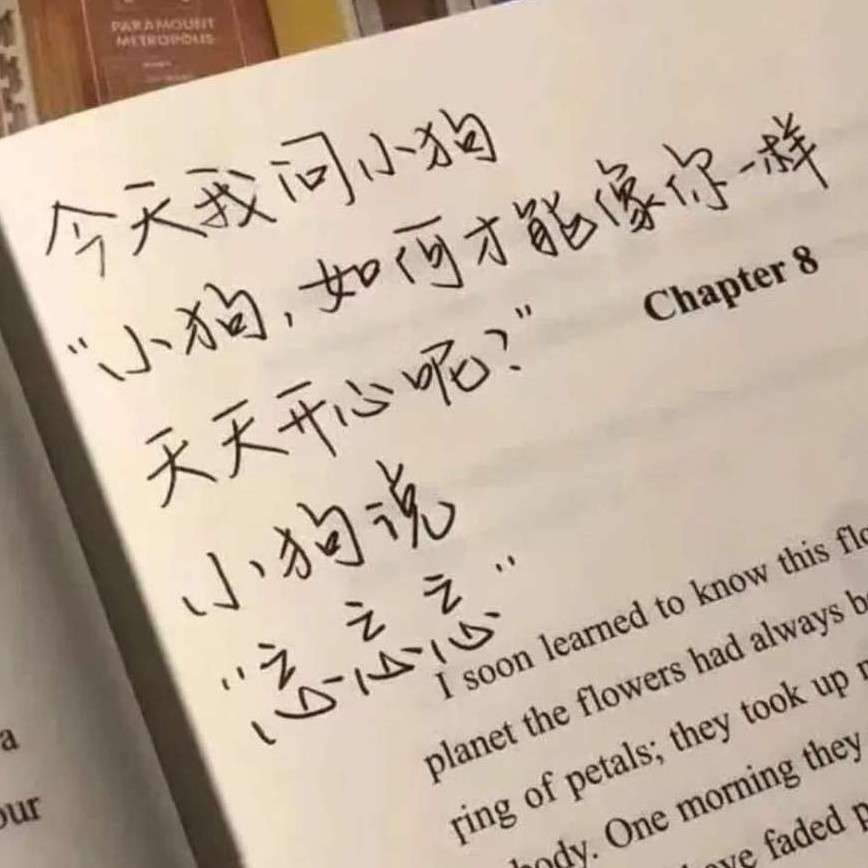 PARAMOUNT
METROPOLIS
今天我问小狗
“小狗，如何才能像你一样
天天开心呢？”
小狗说
“忘忘忘”
Chapter 8
I soon learned to know this flo
planet the flowers had always b
ring of petals; they took up
body. One morning they
faded
a
our